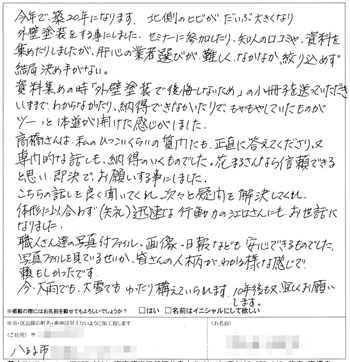 今年で、築20年になります。北側のヒビが、だいぶ大きくなり
外壁塗装をする事にしました。セミナーに参加したり、知人の口コミや、資料を
集めたりしましたが、肝心の業者選びが、難しく、なかなか、絞り込めず
結局決め手がない。
資料集めの時「外壁塗装で後悔しないため」の小冊子を送っていただき
いままで、わからなかったり、納得できなかったりで、もやもやしていたものが
ツーっと一本道が開けた感じがしました。
高橋さんは、私のしつこいくらいの質問にも、正直に答えてくださり、又
専門的な話しも、納得のいくものでした。花まるさんなら信頼できる
と思い、即決で、お願いする事にしました。
こちらの話しを良く聞いてくれ、次々と疑問を解決してくれ、
体形に似合わず(失礼)迅速な行動力の
さんにも、お世話に
なりました。
職人さん達の写真付ファイル、画像、日報なども安心できるものでした。
写真ファイルを見ているせいか、皆さんの人柄が、わかる様な感じで
頼もしかったです。
今、大雨でも、大雪でも、ゆったり構えていられます。10年後も又、宜しくお願い
します。
※掲載の際にはお名前を載せてもよろしいでしょうか?
□はい
□名前はイニシャルにして欲しい
(ご住所)
(お名前)
八王子市